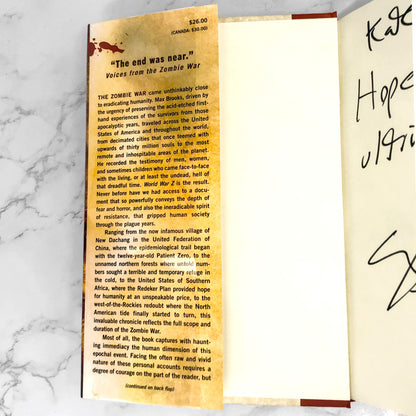 $26.00
(CANADA: $30.00)
"The end was near."
Voices from the Zombie War
THE ZOMBIE WAR came unthinkably close
to eradicating humanity. Max Brooks, driven by
the urgency of preserving the acid-etched first-
hand experiences of the survivors from those
apocalyptic years, traveled across the United
States of America and throughout the world,
from decimated cities that once teemed with
upwards of thirty million souls to the most
remote and inhospitable areas of the planet.
He recorded the testimony of men, women,
and sometimes children who came face-to-face
with the living, or at least the undead, hell of
that dreadful time. World War Z is the result.
Never before have we had access to a docu-
ment that so powerfully conveys the depth of
fear and horror, and also the ineradicable spirit
of resistance, that gripped human society
through the plague years.
Ranging from the now infamous village of
New Dachang in the United Federation of
China, where the epidemiological trail began
with the twelve-year-old Patient Zero, to the
unnamed northern forests where untold num-
bers sought a terrible and temporary refuge in
the cold, to the United States of Southern
Africa, where the Redeker Plan provided hope
for humanity at an unspeakable price, to the
west-of-the-Rockies redoubt where the North
American tide finally started to turn, this
invaluable chronicle reflects the full scope and
duration of the Zombie War.
Most of all, the book captures with haunt-
ing immediacy the human dimension of this
epochal event. Facing the often raw and vivid
nature of these personal accounts requires a
degree of courage on the part of the reader, but
(continued on back flap)
Hope